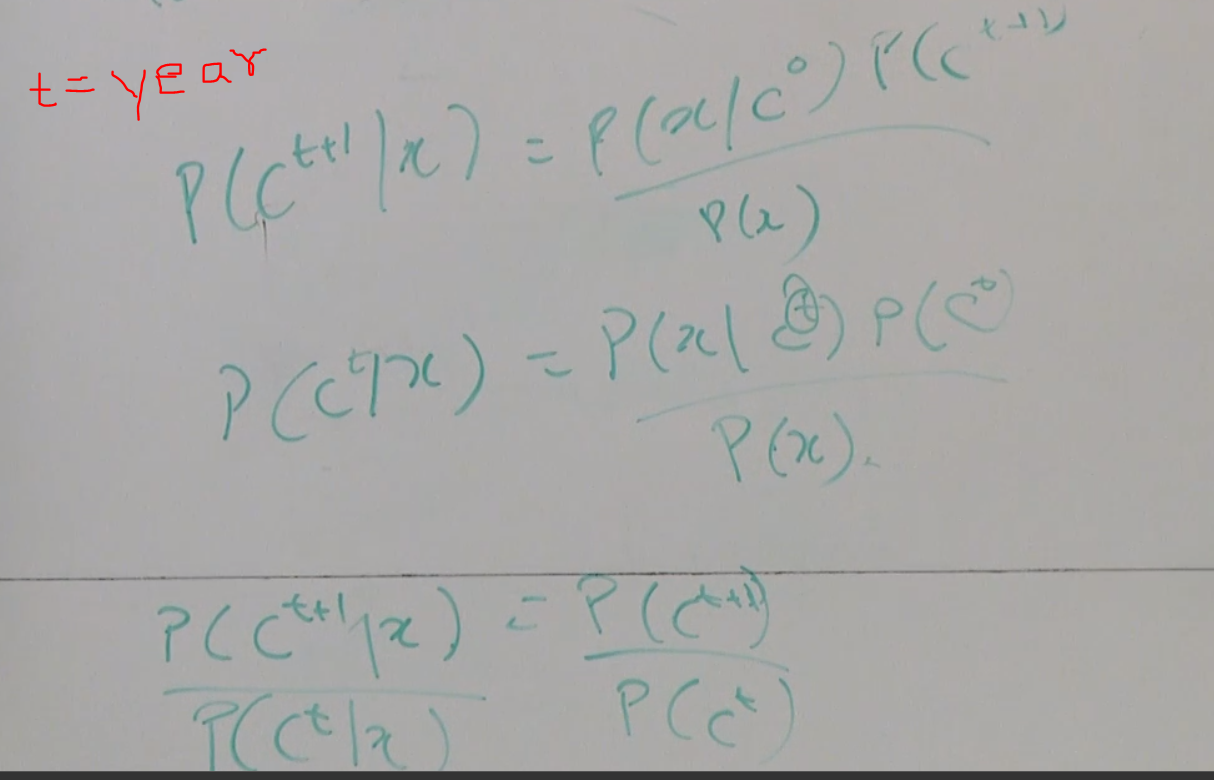 t = year
P(C^{t+1} | x) = P(x | C^0) P(C^{t+1})
P(x)
P(C^t | x) = P(x | C^t) P(C^t)
P(x).
P(C^{t+1} | x) = P(C^{t+1})
P(C^t | x) P(C^t)